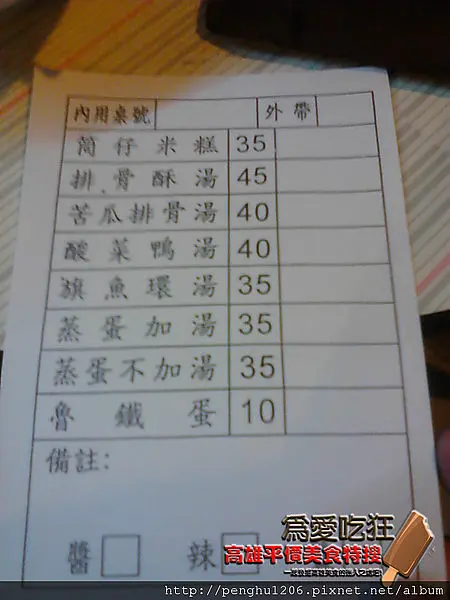 內用桌號 外帶
筒仔米糕 35
排骨酥湯 45
苦瓜排骨湯 40
酸菜鴨湯 40
旗魚環湯 35
蒸蛋加湯 35
蒸蛋不加湯 35
魯鐵蛋 10
備註:
醬 辣
為愛吃狂
高雄平價美食特搜
http://penghu1206.pixnet.net/album